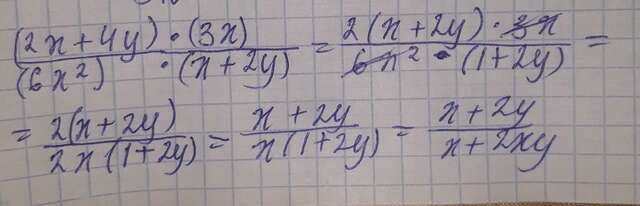 (2x+4y)·(3x)/(6x²)·(x+2y) = 2(x+2y)·3x/6x²·(1+2y) =
= 2(x+2y)/2x(1+2y) = x+2y/x(1+2y) = x+2y/x+2xy